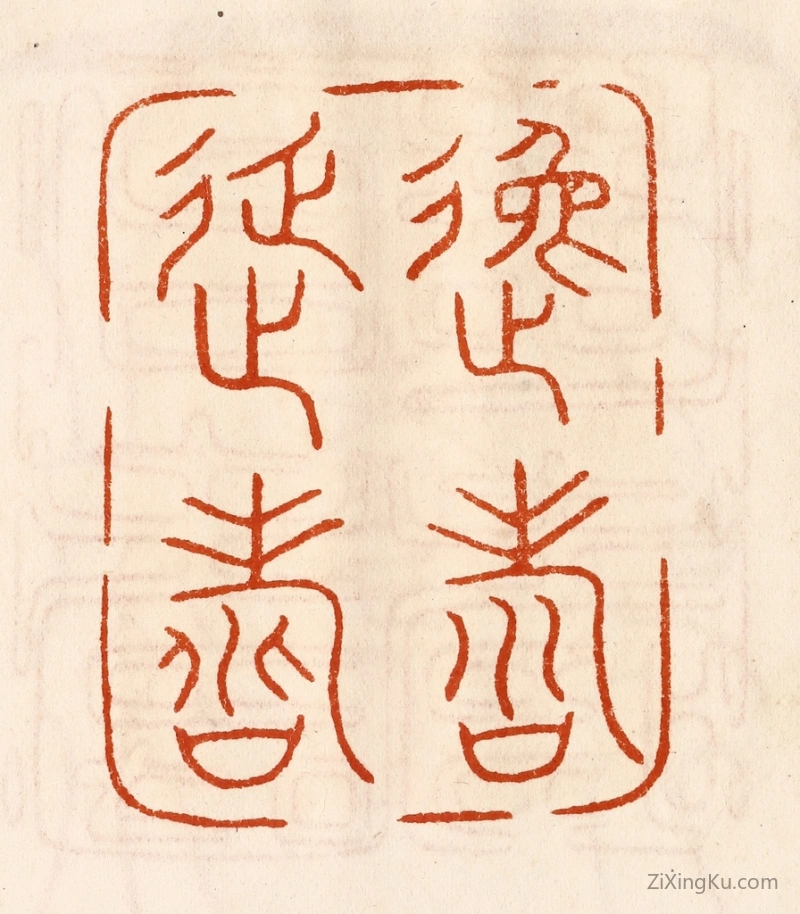 逸壽
延壽
ZiXingKu.com